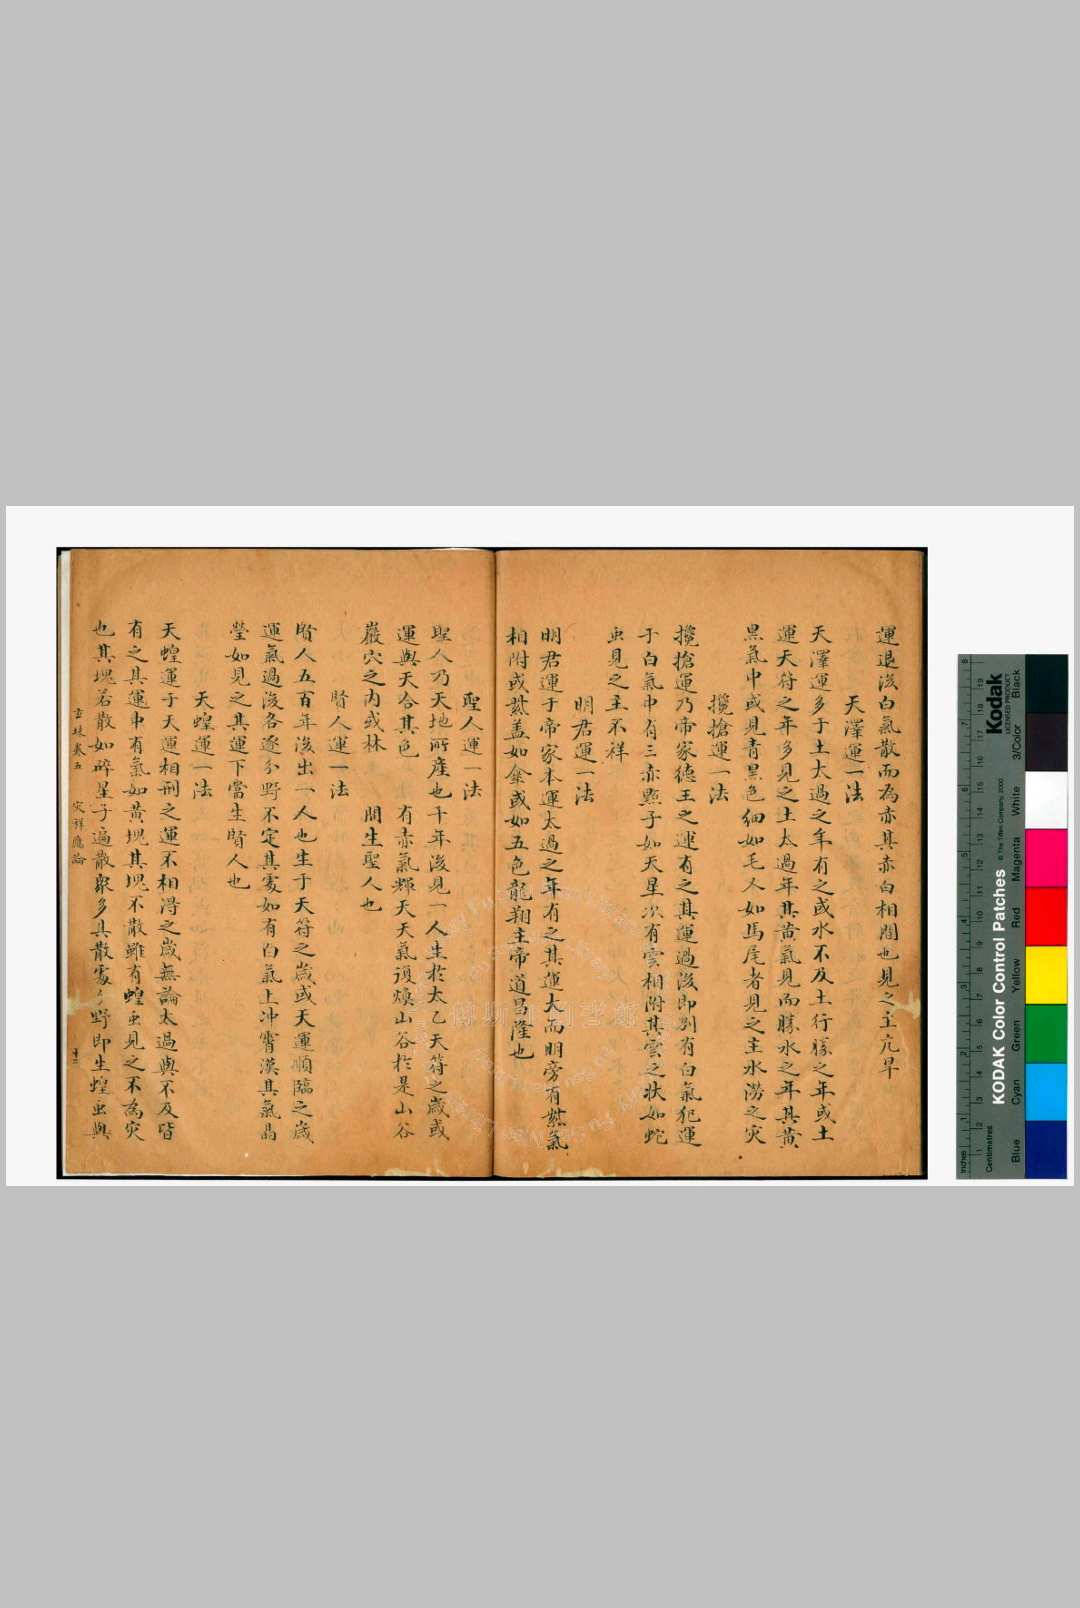 運退後白氣散而為赤其赤白相間也見之主亢旱
天澤運一法
天澤運多于土太過之年有之或水不及土行勝之年或土
運天符之年多見之土太過年其黃氣見而勝水之年其黃
黑氣中或見青黑色細如毛不如馬尾者見之主水澇之灾
攙搶運一法
攙搶運乃帝家德王之運有之其運過後即別有白氣犯運
于白氣中有三赤點子如天星次有雲相附其雲之狀如蛇
虫見之主不祥
明君運一法
明君運于帝家本運太過之年有之其運大而明旁有紫氣
相附或紫盖如傘或如五色龍翔主帝道昌隆也
聖人運一法
聖人乃天地所產也千年後見一人生於太乙天符之歲或
運與天合其色 有赤氣輝天天氣復煥山谷於是山谷
巖穴之內或林 間生聖人也
賢人運一法
賢人五百年後出一人也生于天符之歲或天運順臨之歲
運氣過後各逐分野不定其處如有白氣上冲霄漢其氣晶
瑩如見之其運下當生賢人也
天蝗運一法
天蝗運于天運相刑之運不相淂之歲無論太過與不及皆
有之其運中有氣如黃塊其塊不散雖有蝗虫見之不為灾
也其塊若散如碎星子遍散衆多具散處分野即生蝗虫與
玄珠卷五 灾祥應論 十二
Kodak
LICENSED PRODUCT
KODAK Color Control Patches
© The Tiffen Company, 2000
Inches
Centimetres
Blue Cyan Green Yellow Red Magenta White 3/Color Black
傅斯年圖書館